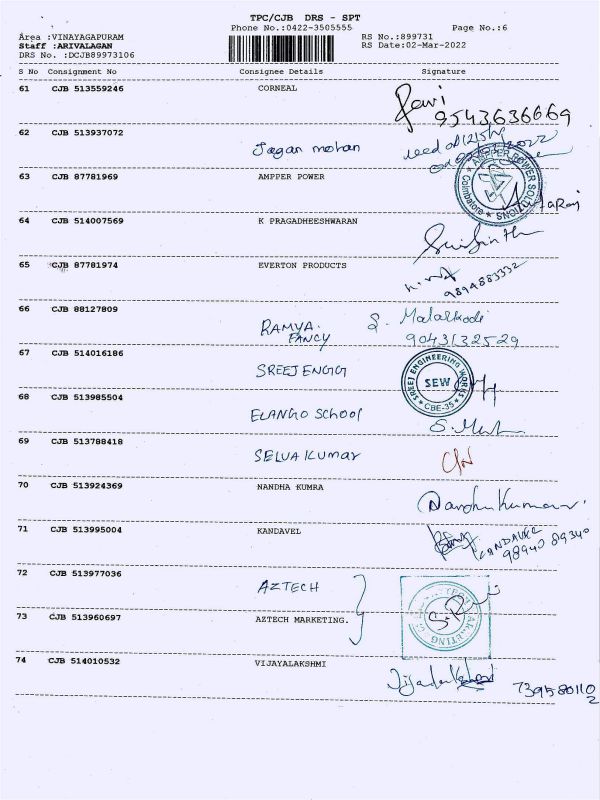 TPC/CJB DRS - SPT
Phone No.:0422-3505555 Page No.:6
Area :VINAYAGAPURAM RS No.:899731
Staff :ARIVALAGAN RS Date:02-Mar-2022
DRS No. :DCJB89973106
S No Consignment No Consignee Details Signature
61 CJB 513559246 CORNEAL
9543636669
62 CJB 513937072 Jagan mohan
63 CJB 87781969 AMPPER POWER
AMPPER POWER SOLUTIONS Coimbatore
64 CJB 514007569 K PRAGADHEESHWARAN
65 CJB 87781974 EVERTON PRODUCTS
9894883332
66 CJB 88127809 RAMYA FANCY S. Malarkodi
9043132529
67 CJB 514016186 SREEJ ENGG
SREEJ ENGINEERING WORKS SEW CBE-35
68 CJB 513985504 ELANGO School
69 CJB 513788418 SELVA KUMAR
70 CJB 513924369 NANDHA KUMRA
Nandhakumar
71 CJB 513995004 KANDAVEL
KANDAVEL
98940 89340
72 CJB 513977036 AZTECH
73 CJB 513960697 AZTECH MARKETING.
74 CJB 514010532 VIJAYALAKSHMI
7395801102